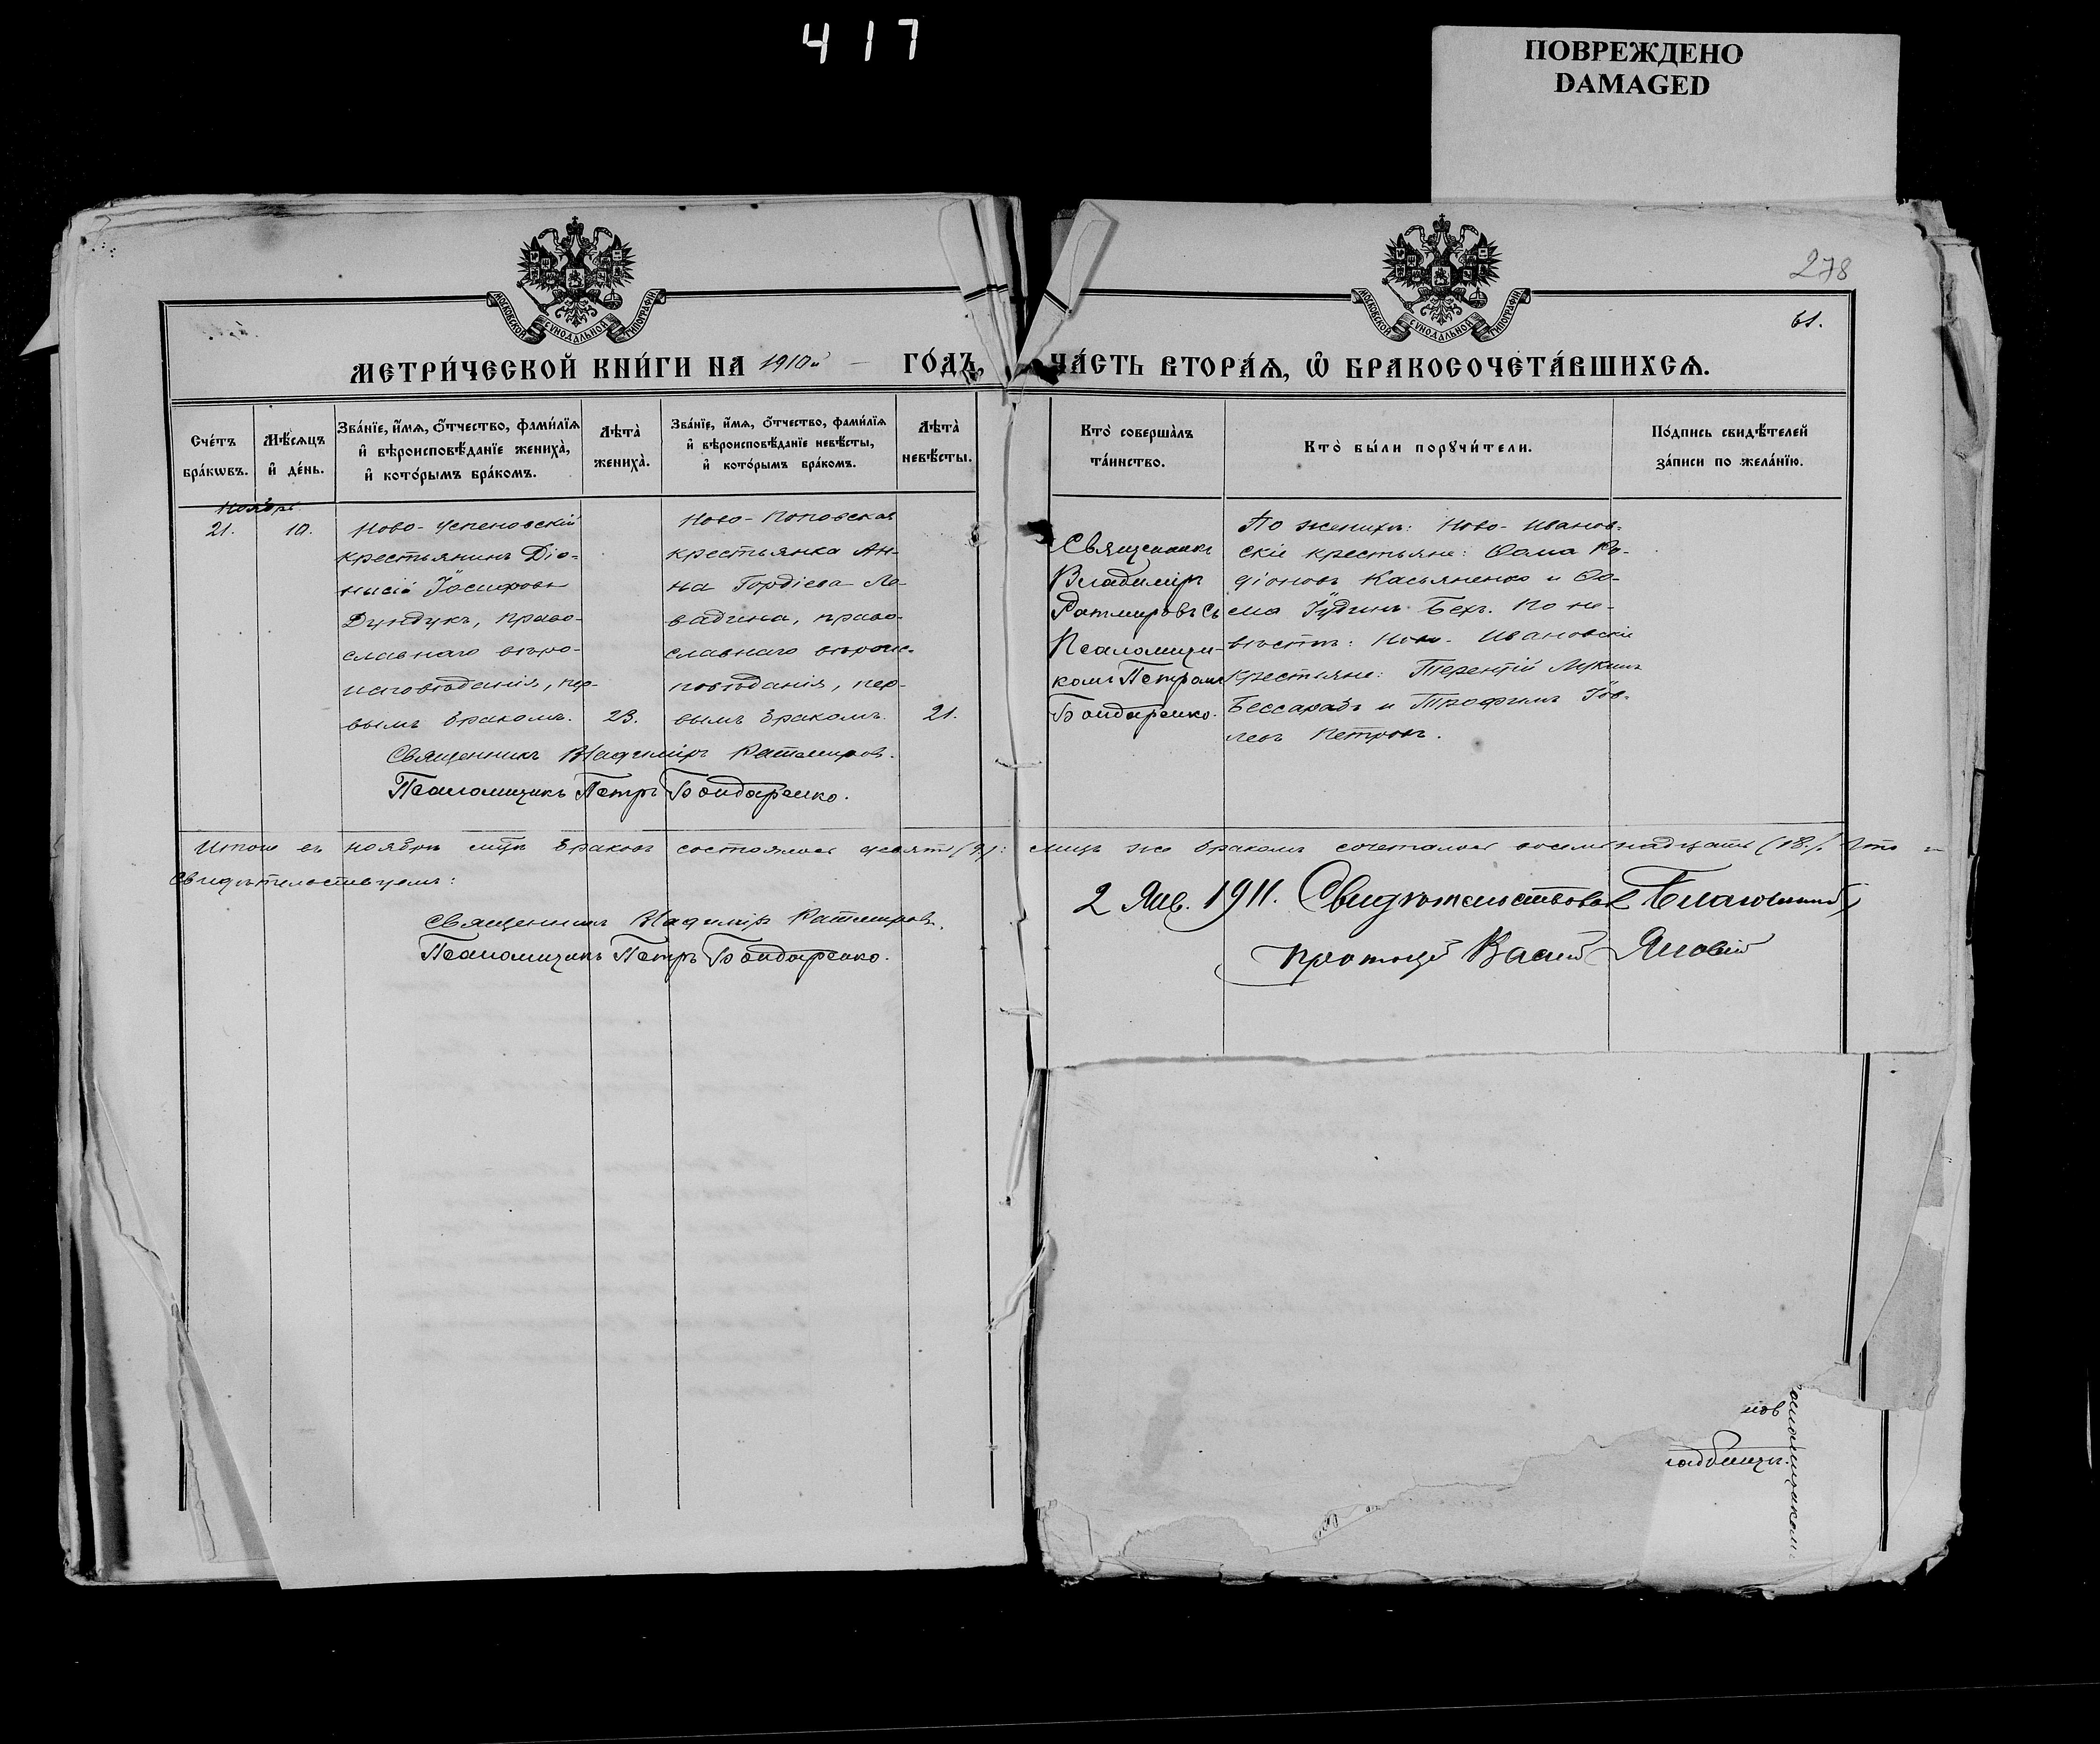 417
ПОВРЕЖДЕНО
DAMAGED
278
61.
МОСКОВСКОЙ СѴНОДАЛЬНОЙ ТИПОГРАФІИ
МОСКОВСКОЙ СѴНОДАЛЬНОЙ ТИПОГРАФІИ
МЕТРИ́ЧЕСКОЙ КНИ́ГИ НА 1910й — ГО́ДЪ,
ЧА́СТЬ ВТОРА́Ѧ, Ѡ҆ БРАКОСОЧЕТА́ВШИХСѦ.
Сче́тъ бра́кѡвъ.
Мѣ́сѧцъ и҆ де́нь.
Зва́нїе, и҆́мѧ, ѻ҆́тчество, фами́лїѧ
и҆ вѣроисповѣ́данїе жениха̀,
и҆ кото́рымъ бра́комъ.
Лѣта̀ жениха̀.
Зва́нїе, и҆́мѧ, ѻ҆́тчество, фами́лїѧ
и҆ вѣроисповѣ́данїе невѣ́сты,
и҆ кото́рымъ бра́комъ.
Лѣта̀ невѣ́сты.
Кто̀ соверша́лъ
та́инство.
Кто̀ бы́ли порꙋчи́тели.
По́дпись свидѣ́телей
за́писи по жела́нїю.
Ноябрь
21. 10.
Ново-Успеновскій
крестьянинъ Діо-
нисій Іосифовъ
Дундукъ, право-
славнаго вѣро-
исповѣданія, пер-
вымъ бракомъ. 23.
Ново-Поповская
крестьянка Ан-
на Гордіева Ле-
вадина, право-
славнаго вѣроис-
повѣданія, пер-
вымъ бракомъ. 21.
Священникъ Владиміръ Ратмировъ.
Псаломщикъ Петръ Бондаренко.
Священникъ
Владиміръ
Ратмировъ съ
Псаломщи-
комъ Петромъ
Бондаренко.
По женихѣ: Ново-Иванов-
скіе крестьяне: Ѳома Ро-
діоновъ Касьяненко и Ѳо-
ма Іудинъ Бехъ. По не-
вѣстѣ: Ново-Ивановскіе
крестьяне: Терентій Лукинъ
Бессарабъ и Трофимъ Іов-
левъ Петровъ.
Итого въ ноябрѣ мцѣ браковъ состоялось девять (9): лицъ же бракомъ сочеталось восемнадцать (18). Что и
свидѣтельствуемъ:
Священникъ Владиміръ Ратмировъ.
Псаломщикъ Петръ Бондаренко.
2 Янв. 1911. Свидѣтельствовалъ Благочинный
протоіерей Васил
псаломщикомъ